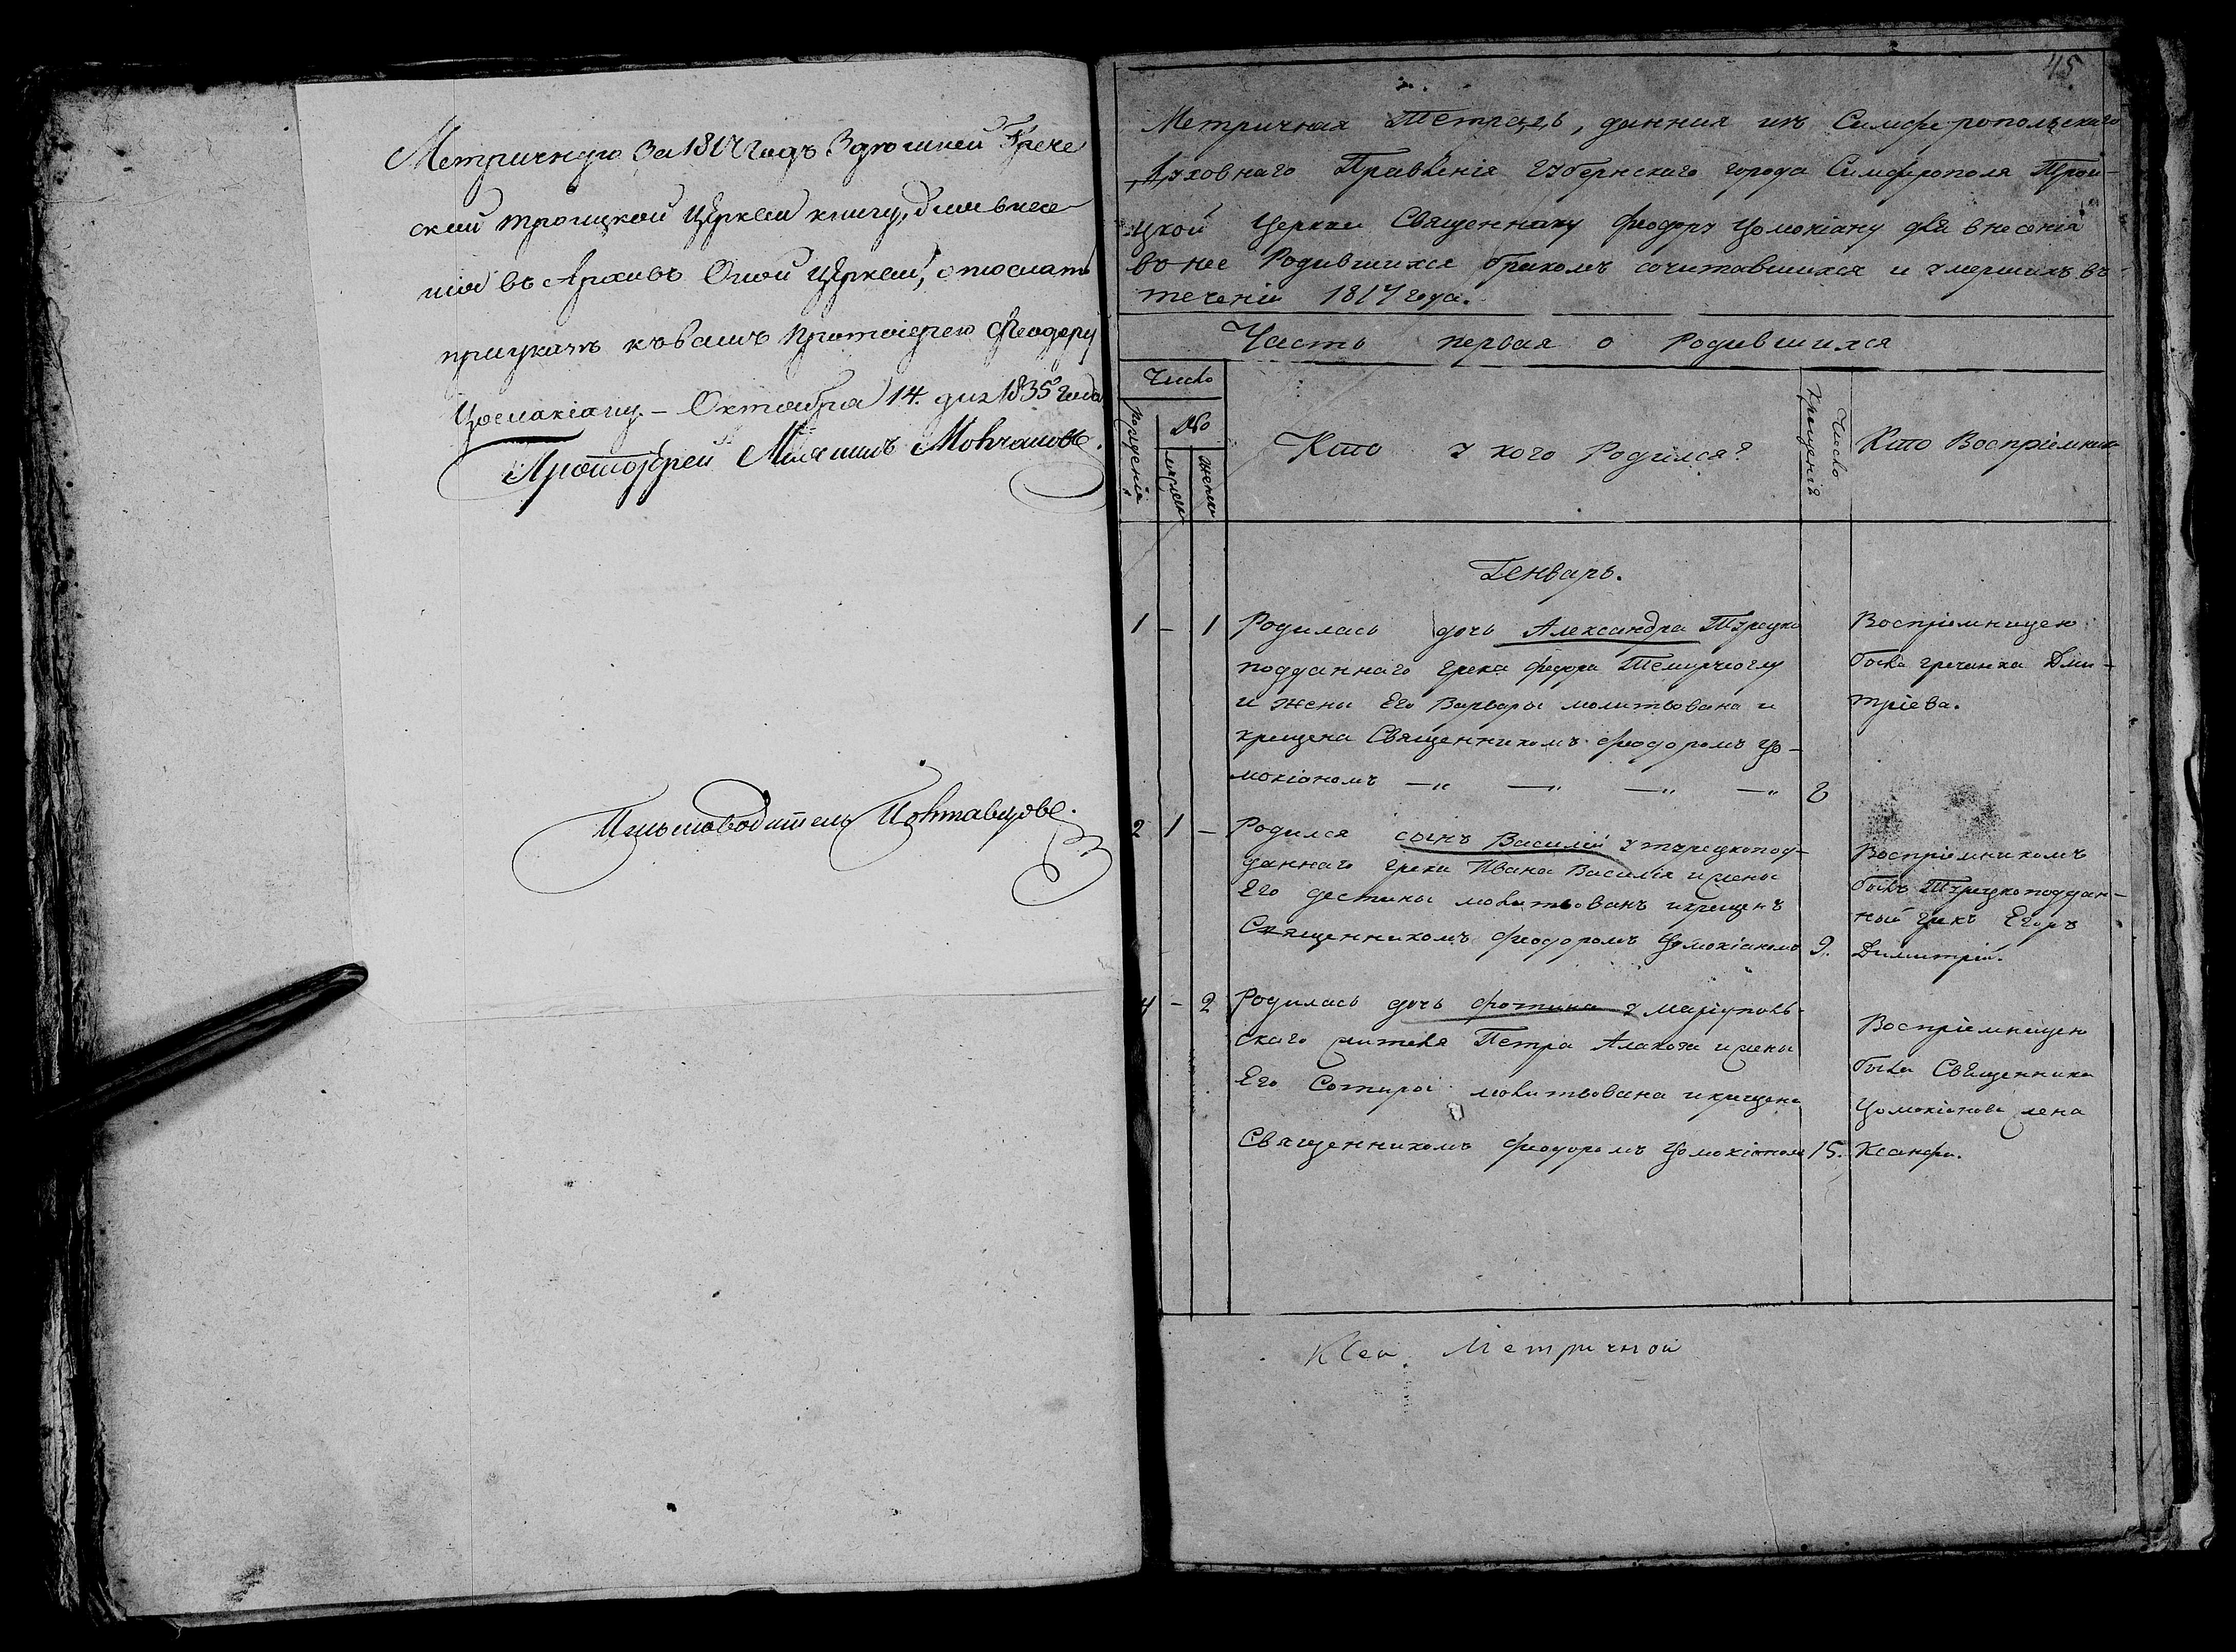 Метричную За 1817 Годъ Здешней Грече
ской троицкой Церкви книгу, для внесе
нія въ Архивъ Оной Церкви, отослать
къ Протоіерею Феодору
Цомакіану. — Октября 14. дня 1835 Года
Протоіерей Молчановъ.
Письмоводитель Полтавцовъ.
45
Метричная Тетрадь, данная изъ Симферопольскаго
Духовнаго Правленія губернскаго города Симферополя Трои-
цкой Церкви Священнику Феодору Цомокіану для внесенія
во нее Родившихся бракомъ сочитавшихся и умершихъ въ
теченіи 1817 года.
Часть первая о Родившихся
Число рожденія
№
мужеск
женск
Кто у кого Родился?
Число Крещенія
Кто Воспріемник
Генварь.
1 — 1 Родилась дочь Александра Турецко
подданнаго грека Федора Темурчиоглу
и жены Его Варвары молитвована и
крещена Священникомъ Феодоромъ Цо-
мокіаномъ —〃 —〃 —〃 —〃 8
Воспріемницею
была гречанка Дми-
тріева.
2 1 — Родился сынъ Василій у турецкопод-
даннаго грека Ивана Василія и жены
Его Дестины молитвованъ и крещенъ
Священникомъ Феодоромъ Цомокіаномъ 9.
Воспріемникомъ
былъ Турецкоподдан-
ный грекъ Егоръ
Димитрій.
4 — 2 Родилась дочь Фотина у маріуполь-
скаго жителя Петра и жены
Его Сотиры молитвована и крещена
Священникомъ Феодоромъ Цомокіаномъ 15.
Воспріемницею
была Священника
Цомокіанова жена
Ксанфи.
Ксей Метричной